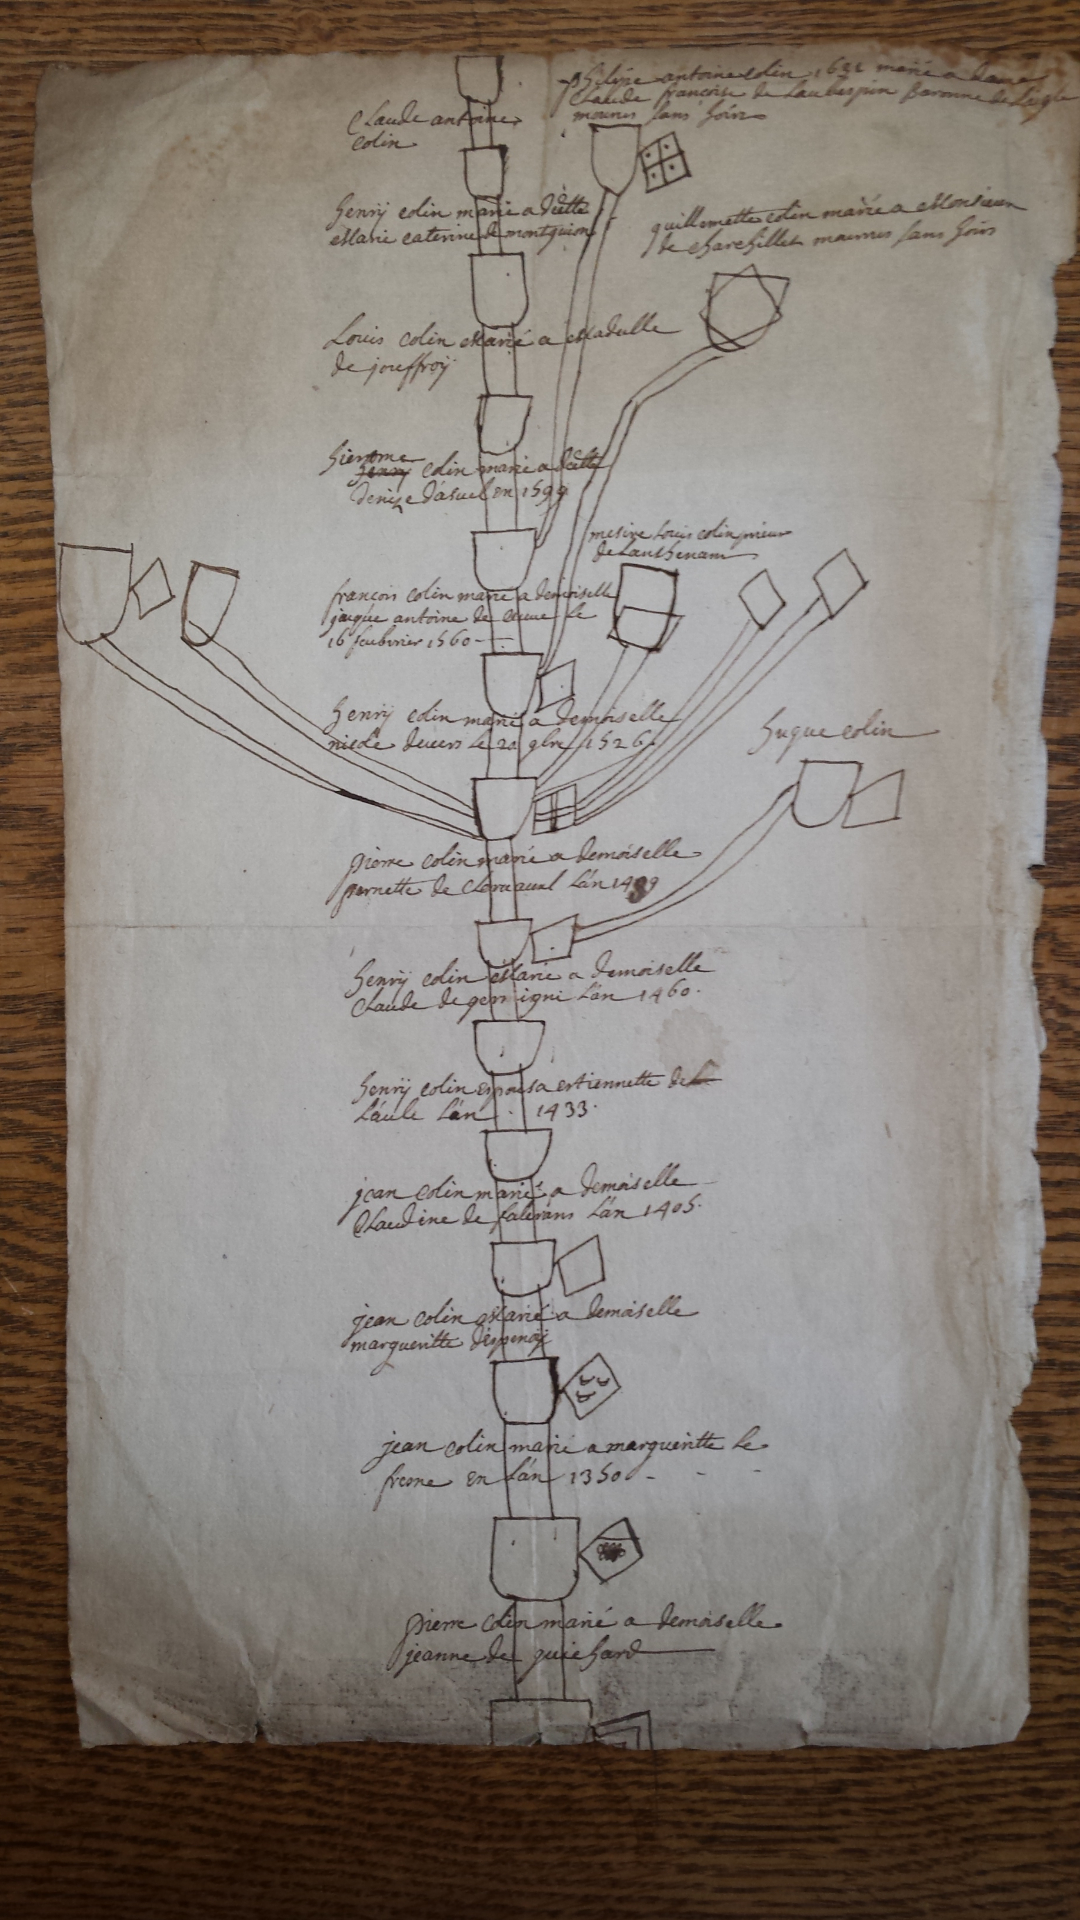 philipe antoine colin 1632 marié a dame
Claude françoise de Laubespin Baronne de
mourus sans hoirs
Claude antoine
colin
henrÿ colin marié a dëlle
Marie caterine de montguion
guillemette colin mariée a Monsieur
de charchillet mourus sans hoirs
Louis colin Marié a Madelle
de jouffroÿ
hierome
henry colin marié a dëlle
denize d'asuel en 1599
mesire Louis colin prieur
de
françois colin marié a demoiselle
jaque antoine de le
16 feubvrier 1560
henrÿ colin marié a demoiselle
nicole devers le 20 9bre 1526
hugue colin
pierre colin marié a demoiselle
pernette de Clervaual L'án 1489
henrÿ colin Marié a demoiselle
Claude de germigni L'án 1460.
henrÿ colin espousa estiennette de
L'áule L'án 1433.
jean colin marié a demoiselle
Claudine de falerans L'án 1405.
jean colin Marié a demoiselle
margueritte d'espenoÿ
jean colin marié a margueritte le
frene en L'án 1350
pierre colin marié a demoiselle
jeanne de guichard